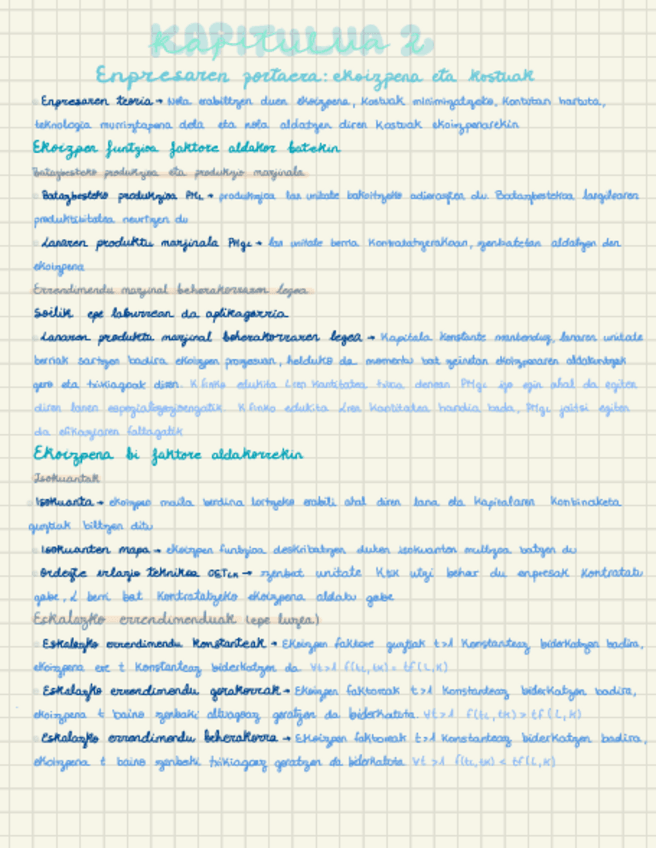 KAPITULUA 2
Enpresaren portaera: ekoizpena eta kostuak
Enpresaren teoria → Nola erabiltzen duen ekoizpena, kostuak minimizatzeko, kontutan hartuta,
teknologia murriztapena dela eta nola aldatzen diren kostuak ekoizpenarekin
Ekoizpen funtzioa faktore aldakor batekin
Batazbesteko produkzioa eta produkzio marjinala
Batazbesteko produkzioa PML → produkzioa lan unitate bakoitzeko adierazten du. Batazbestekoa langilearen
produktibitatea neurtzen du
Lanaren produktu marjinala PMgL → lan unitate berria kontratatzerakoan, zenbatetan aldatzen den
ekoizpena
Errendimendu marjinal beherakorraren legea
Soilik epe laburrean da aplikagarria
Lanaren produktu marjinal beherakorraren legea → Kapitala konstante mantenduz, lanaren unitate
berriak sartzen badira ekoizpen prozesuan, helduko da momentu bat zeinetan ekoizpenaren aldakuntzak
gero eta txikiagoak diren. K finko edukita L-ren kantitatea txikia denean PMgL igo egin ahal da egiten
diren lanen espezializazioarengatik. K finko edukita L-ren kantitatea handia bada, PMgL jaitsi egiten
da efikaziaren faltagatik
Ekoizpena bi faktore aldakorrekin
Isokuantak
Isokuanta → ekoizpen maila berdina lortzeko erabili ahal diren lana eta kapitalaren konbinaketa
guztiak biltzen ditu
Isokuanten mapa → ekoizpen funtzioa deskribatzen duten isokuanten multzoa batzen du
Ordezte erlazio teknikoa OETLK → zenbat unitate K utzi behar du enpresak kontratatu
gabe, L berri bat kontratatzeko ekoizpena aldatu gabe
Eskalazko errendimenduak (epe luzea)
Eskalazko errendimendu konstanteak → Ekoizpen faktore guztiak t>1 konstanteaz biderkatzen badira,
ekoizpena ere t konstanteaz biderkatzen da ∀t>1 f(tL,tK) = tf(L,K)
Eskalazko errendimendu gorakorrak → Ekoizpen faktoreak t>1 konstanteaz biderkatzen badira,
ekoizpena t baino zenbaki altuagoaz geratzen da biderkatuta ∀t>1 f(tL,tK) > tf(L,K)
Eskalazko errendimendu beherakorra → Ekoizpen faktoreak t>1 konstanteaz biderkatzen badira,
ekoizpena t baino zenbaki txikiagoaz geratzen da biderkatuta ∀t>1 f(tL,tK) < tf(L,K)